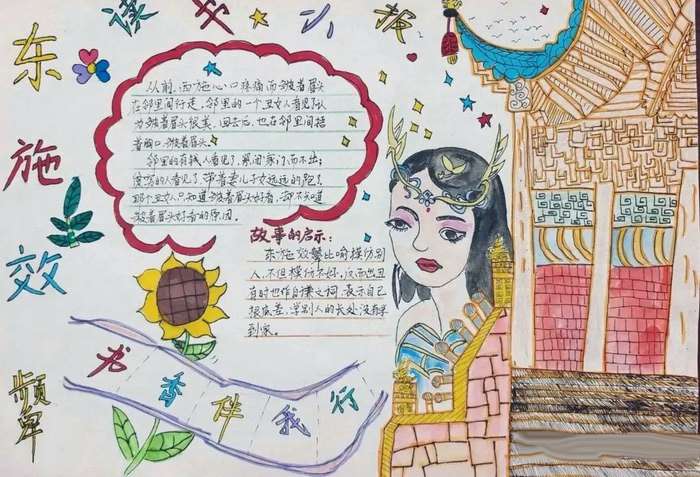 读书小报
东施效颦
从前,西施心口疼痛而皱着眉头
在邻里间行走,邻里的一个丑女人看见了,认
为皱着眉头很美,回去后,也在邻里间捂
着胸口,皱着眉头。
邻里的有钱人看见了,紧闭家门而不出;
贫穷的人看见了,带着妻儿子女远远的跑了。
那个丑女人只知道皱着眉头好看,却不知道
皱着眉头好看的原因。
故事的启示:
东施效颦比喻模仿别
人,不但模仿不好,反而出丑
有时也作自谦之词,表示自己
根底差,学别人的长处没有学
到家。
书香伴我行